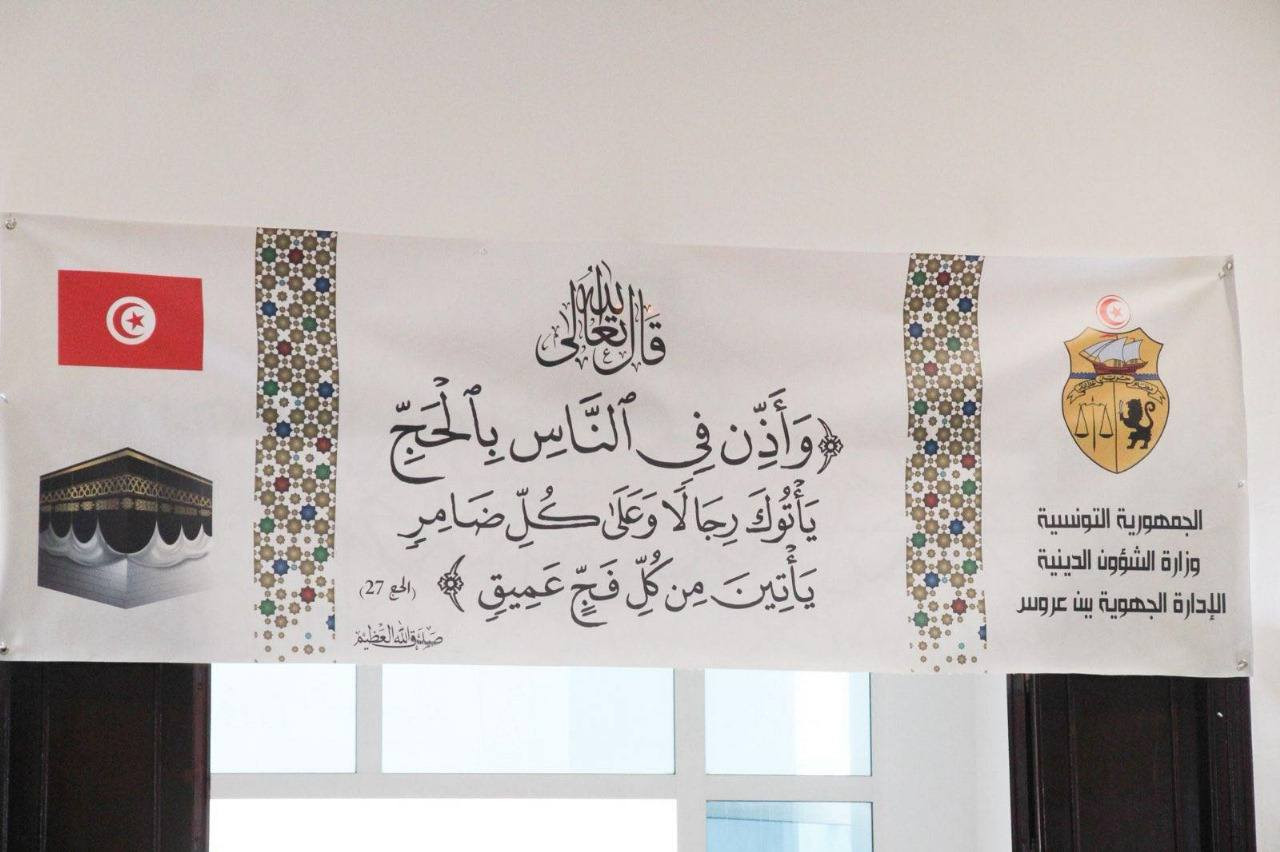 قال الله تعالى
﴿وَأَذِّن فِي ٱلنَّاسِ بِٱلْحَجِّ
يَأْتُوكَ رِجَالًا وَعَلَىٰ كُلِّ ضَامِرٍ
يَأْتِينَ مِن كُلِّ فَجٍّ عَمِيقٍ﴾ (الحج 27)
صدق الله العظيم
الجمهورية التونسية
وزارة الشؤون الدينية
الإدارة الجهوية ببن عروس